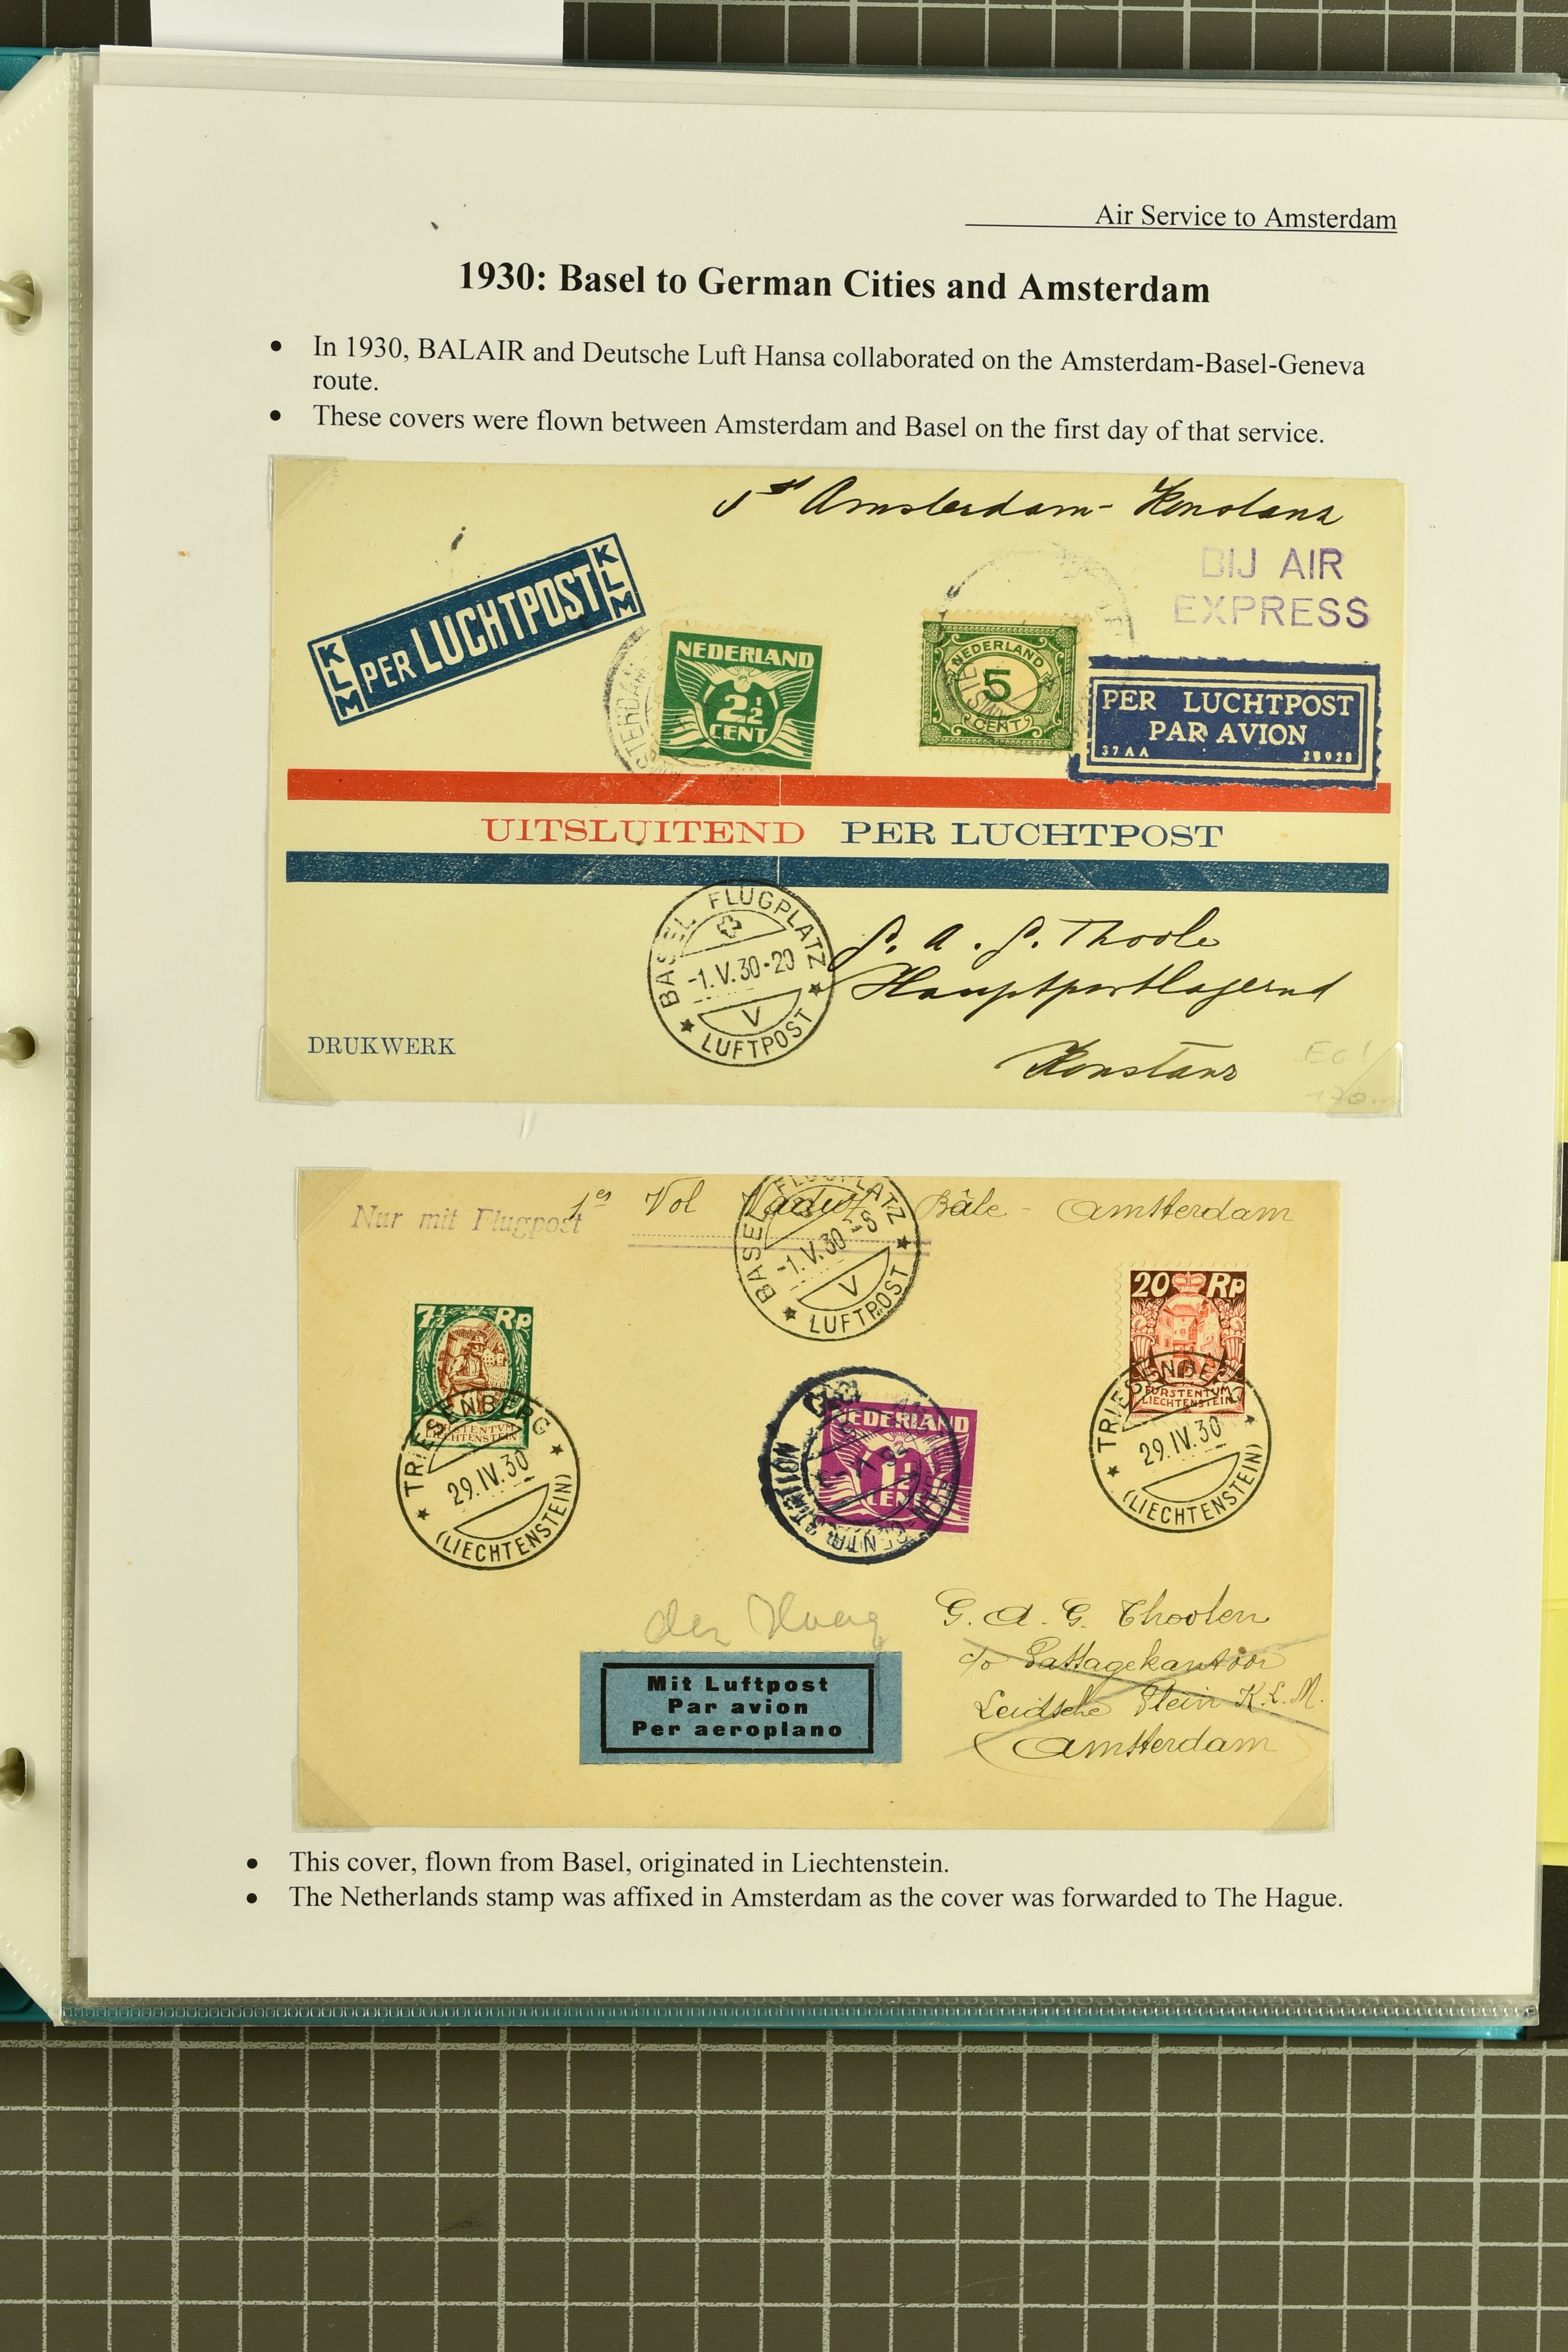 Air Service to Amsterdam
1930: Basel to German Cities and Amsterdam
• In 1930, BALAIR and Deutsche Luft Hansa collaborated on the Amsterdam-Basel-Geneva
route.
• These covers were flown between Amsterdam and Basel on the first day of that service.
Amsterdam - Konstanz
BIJ AIR
EXPRESS
KLM PER LUCHTPOST KLM
NEDERLAND
2½
CENT
NEDERLAND
5
CENT
PER LUCHTPOST
PAR AVION
37AA 28928
UITSLUITEND PER LUCHTPOST
BASEL FLUGPLATZ
-1.V.30-20
V
LUFTPOST
Thoole
Hauptpostlagernd
Konstanz
DRUKWERK
Nur mit Flugpost
1es Vol Vaduz Bâle - Amsterdam
BASEL FLUGPLATZ
-1.V.30-8
V
LUFTPOST
7½ Rp
FÜRSTENTUM
LIECHTENSTEIN
TRIESENBERG
29.IV.30
(LIECHTENSTEIN)
NEDERLAND
1½
CENT
20 Rp
FÜRSTENTUM
LIECHTENSTEIN
TRIESENBERG
29.IV.30
(LIECHTENSTEIN)
den Haag
G. A. G. Thoolen
c/o Passagekantoor
Leidsche Plein K.L.M.
Amsterdam
Mit Luftpost
Par avion
Per aeroplano
• This cover, flown from Basel, originated in Liechtenstein.
• The Netherlands stamp was affixed in Amsterdam as the cover was forwarded to The Hague.